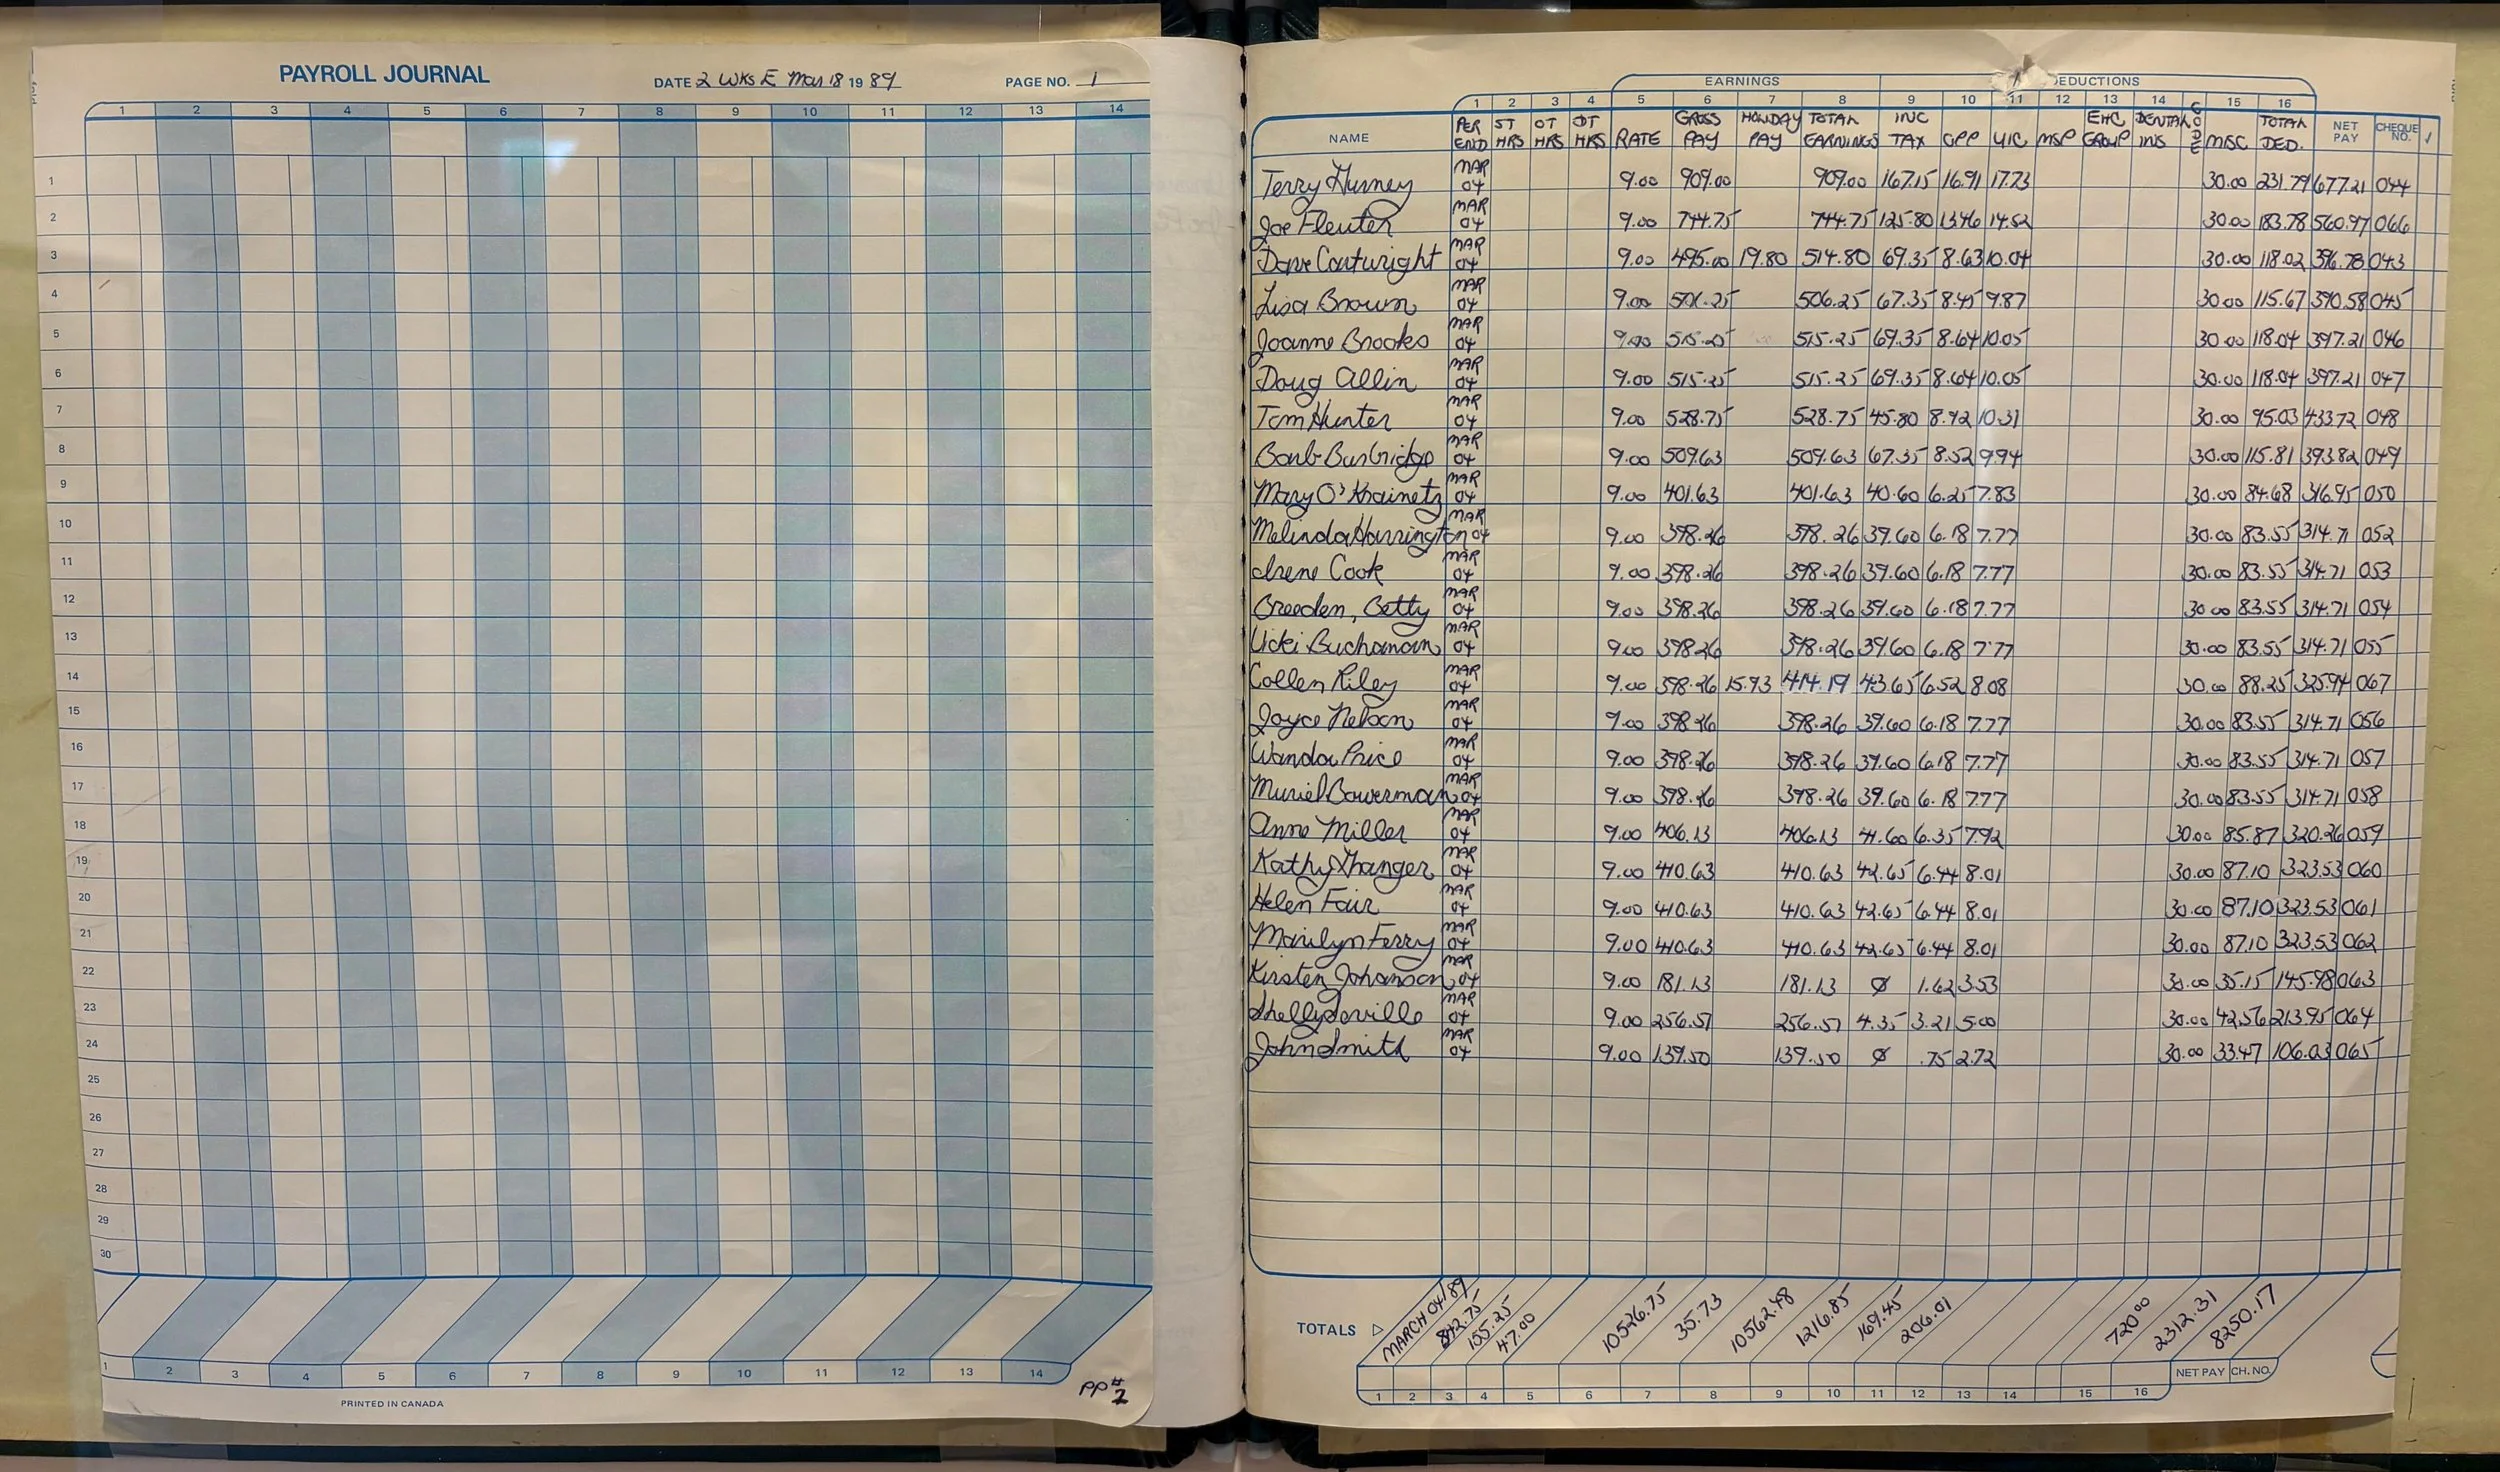 PAYROLL JOURNAL DATE 2 WKS E Mar 18 1989 PAGE NO. 1
1 2 3 4 5 6 7 8 9 10 11 12 13 14
1
2
3
4
5
6
7
8
9
10
11
12
13
14
15
16
17
18
19
20
21
22
23
24
25
26
27
28
29
30
1 2 3 4 5 6 7 8 9 10 11 12 13 14
PRINTED IN CANADA
PP# 2
EARNINGS DEDUCTIONS
1 2 3 4 5 6 7 8 9 10 11 12 13 14 15 16
NAME PER END ST HRS OT HRS DT HRS RATE GROSS PAY HOLIDAY PAY TOTAL EARNINGS INC TAX CPP UIC MSP EHC GROUP DENTAL INS CODE MISC TOTAL DED. NET PAY CHEQUE NO. √
Terry Hurney MAR 04 9.00 909.00 909.00 167.15 16.91 17.73 30.00 231.79 677.21 044
Joe Fleuter MAR 04 9.00 744.75 744.75 125.80 13.46 14.52 30.00 183.78 560.97 066
Dave Cartwright MAR 04 9.00 495.00 19.80 514.80 69.35 8.63 10.04 30.00 118.02 396.78 043
Lisa Brown MAR 04 9.00 506.25 506.25 67.35 8.45 9.87 30.00 115.67 390.58 045
Joanne Brooks MAR 04 9.00 515.25 515.25 69.35 8.64 10.05 30.00 118.04 397.21 046
Doug Allin MAR 04 9.00 515.25 515.25 69.35 8.64 10.05 30.00 118.04 397.21 047
Tom Hunter MAR 04 9.00 528.75 528.75 45.80 8.92 10.31 30.00 95.03 433.72 048
Barb Busbridge MAR 04 9.00 509.63 509.63 67.35 8.52 9.94 30.00 115.81 393.82 049
Mary O'Krainetz MAR 04 9.00 401.63 401.63 40.60 6.25 7.83 30.00 84.68 316.95 050
Melinda Harrington MAR 04 9.00 398.26 398.26 39.60 6.18 7.77 30.00 83.55 314.71 052
Irene Cook MAR 04 9.00 398.26 398.26 39.60 6.18 7.77 30.00 83.55 314.71 053
Breeden, Betty MAR 04 9.00 398.26 398.26 39.60 6.18 7.77 30.00 83.55 314.71 054
Vicki Buchanan MAR 04 9.00 398.26 398.26 39.60 6.18 7.77 30.00 83.55 314.71 055
Collen Riley MAR 04 9.00 398.26 15.93 414.19 43.65 6.52 8.08 30.00 88.25 325.94 067
Joyce Nelson MAR 04 9.00 398.26 398.26 39.60 6.18 7.77 30.00 83.55 314.71 056
Wanda Price MAR 04 9.00 398.26 398.26 39.60 6.18 7.77 30.00 83.55 314.71 057
Muriel Bowerman MAR 04 9.00 398.26 398.26 39.60 6.18 7.77 30.00 83.55 314.71 058
Anne Miller MAR 04 9.00 406.13 406.13 41.60 6.35 7.92 30.00 85.87 320.26 059
Kathy Thanger MAR 04 9.00 410.63 410.63 42.65 6.44 8.01 30.00 87.10 323.53 060
Helen Fair MAR 04 9.00 410.63 410.63 42.65 6.44 8.01 30.00 87.10 323.53 061
Marilyn Ferry MAR 04 9.00 410.63 410.63 42.65 6.44 8.01 30.00 87.10 323.53 062
Kirsten Johanson MAR 04 9.00 181.13 181.13 Ø 1.62 3.53 30.00 35.15 145.98 063
Shelly Saville MAR 04 9.00 256.51 256.51 4.35 3.21 5.00 30.00 42.56 213.95 064
John Smith MAR 04 9.00 139.50 139.50 Ø .75 2.72 30.00 33.47 106.03 065
TOTALS MARCH 04/89 842.75 155.25 47.00 10526.75 35.73 10562.48 1216.85 169.45 206.01 720.00 2312.31 8250.17
NET PAY CH. NO.
1 2 3 4 5 6 7 8 9 10 11 12 13 14 15 16